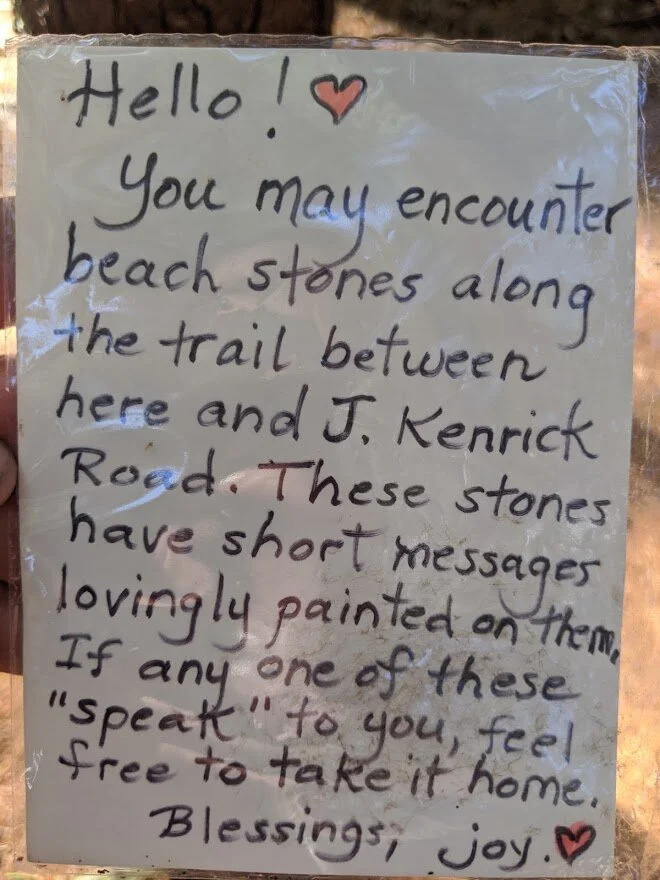 Hello! ♥
You may encounter
beach stones along
the trail between
here and J. Kenrick
Road. These stones
have short messages
lovingly painted on them.
If any one of these
"speak" to you, feel
free to take it home.
Blessings, joy. ♥